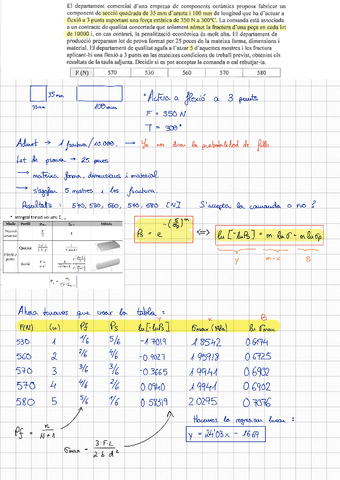 El departament comercial d'una empresa de components ceràmics proposa fabricar un
component de secció quadrada de 35 mm d'aresta i 100 mm de longitud que ha d'actuar a
flexió a 3 punts suportant una força estàtica de 350 N a 300ºC. La comanda està associada
a un contracte de qualitat concertada que solament admet la fractura d'una peça en cada lot
de 10000 i, en cas contrari, la penalització econòmica és molt alta. El departament de
producció prepara un lot de prova format per 25 peces de la mateixa forma, dimensions i
material. El departament de qualitat agafa a l'atzar 5 d'aquestes mostres i les fractura
aplicant-hi una flexió a 3 punts en las mateixes condicions de treball previst, obtenint els
resultats de la taula adjunta. Decidir si es pot acceptar la comanda o cal rebutjar-la.
F (N) 570 530 560 570 580
35 mm
100 mm
* Actua a flexió a 3 punts
F = 350 N
T = 300º
Admet → 1 fractura / 10.000 → Ya em diu la probabilidad de falla
Lot de prova → 25 peces
→ mateixa forma, dimensions i material.
→ s'agafen 5 mostres i les fractura.
Resultats: 570, 530, 560, 570, 580 [N] S'accepta la comanda o no?
Ps = e^-(σ/σ0)^m ⟺ ln[-lnPs] = m·lnσ - m·lnσ0
y m·x B
Ahora tenemos que crear la tabla:
y x B
F(N) (n) Pf Ps ln[-lnPs] σmax (MPa) ln σmax
530 1 1/6 5/6 -1.7019 1.8542 0.6174
560 2 2/6 4/6 -0.9027 1.95918 0.6725
570 3 3/6 3/6 -0.3665 1.9941 0.6902
570 4 4/6 2/6 0.0940 1.9941 0.6902
580 5 5/6 1/6 0.58319 2.0295 0.7076
Pf = n / N+1
σmax = 3·F·L / 2·b·d²
Hacemos la regresion linear:
y = 24'03x - 16'69